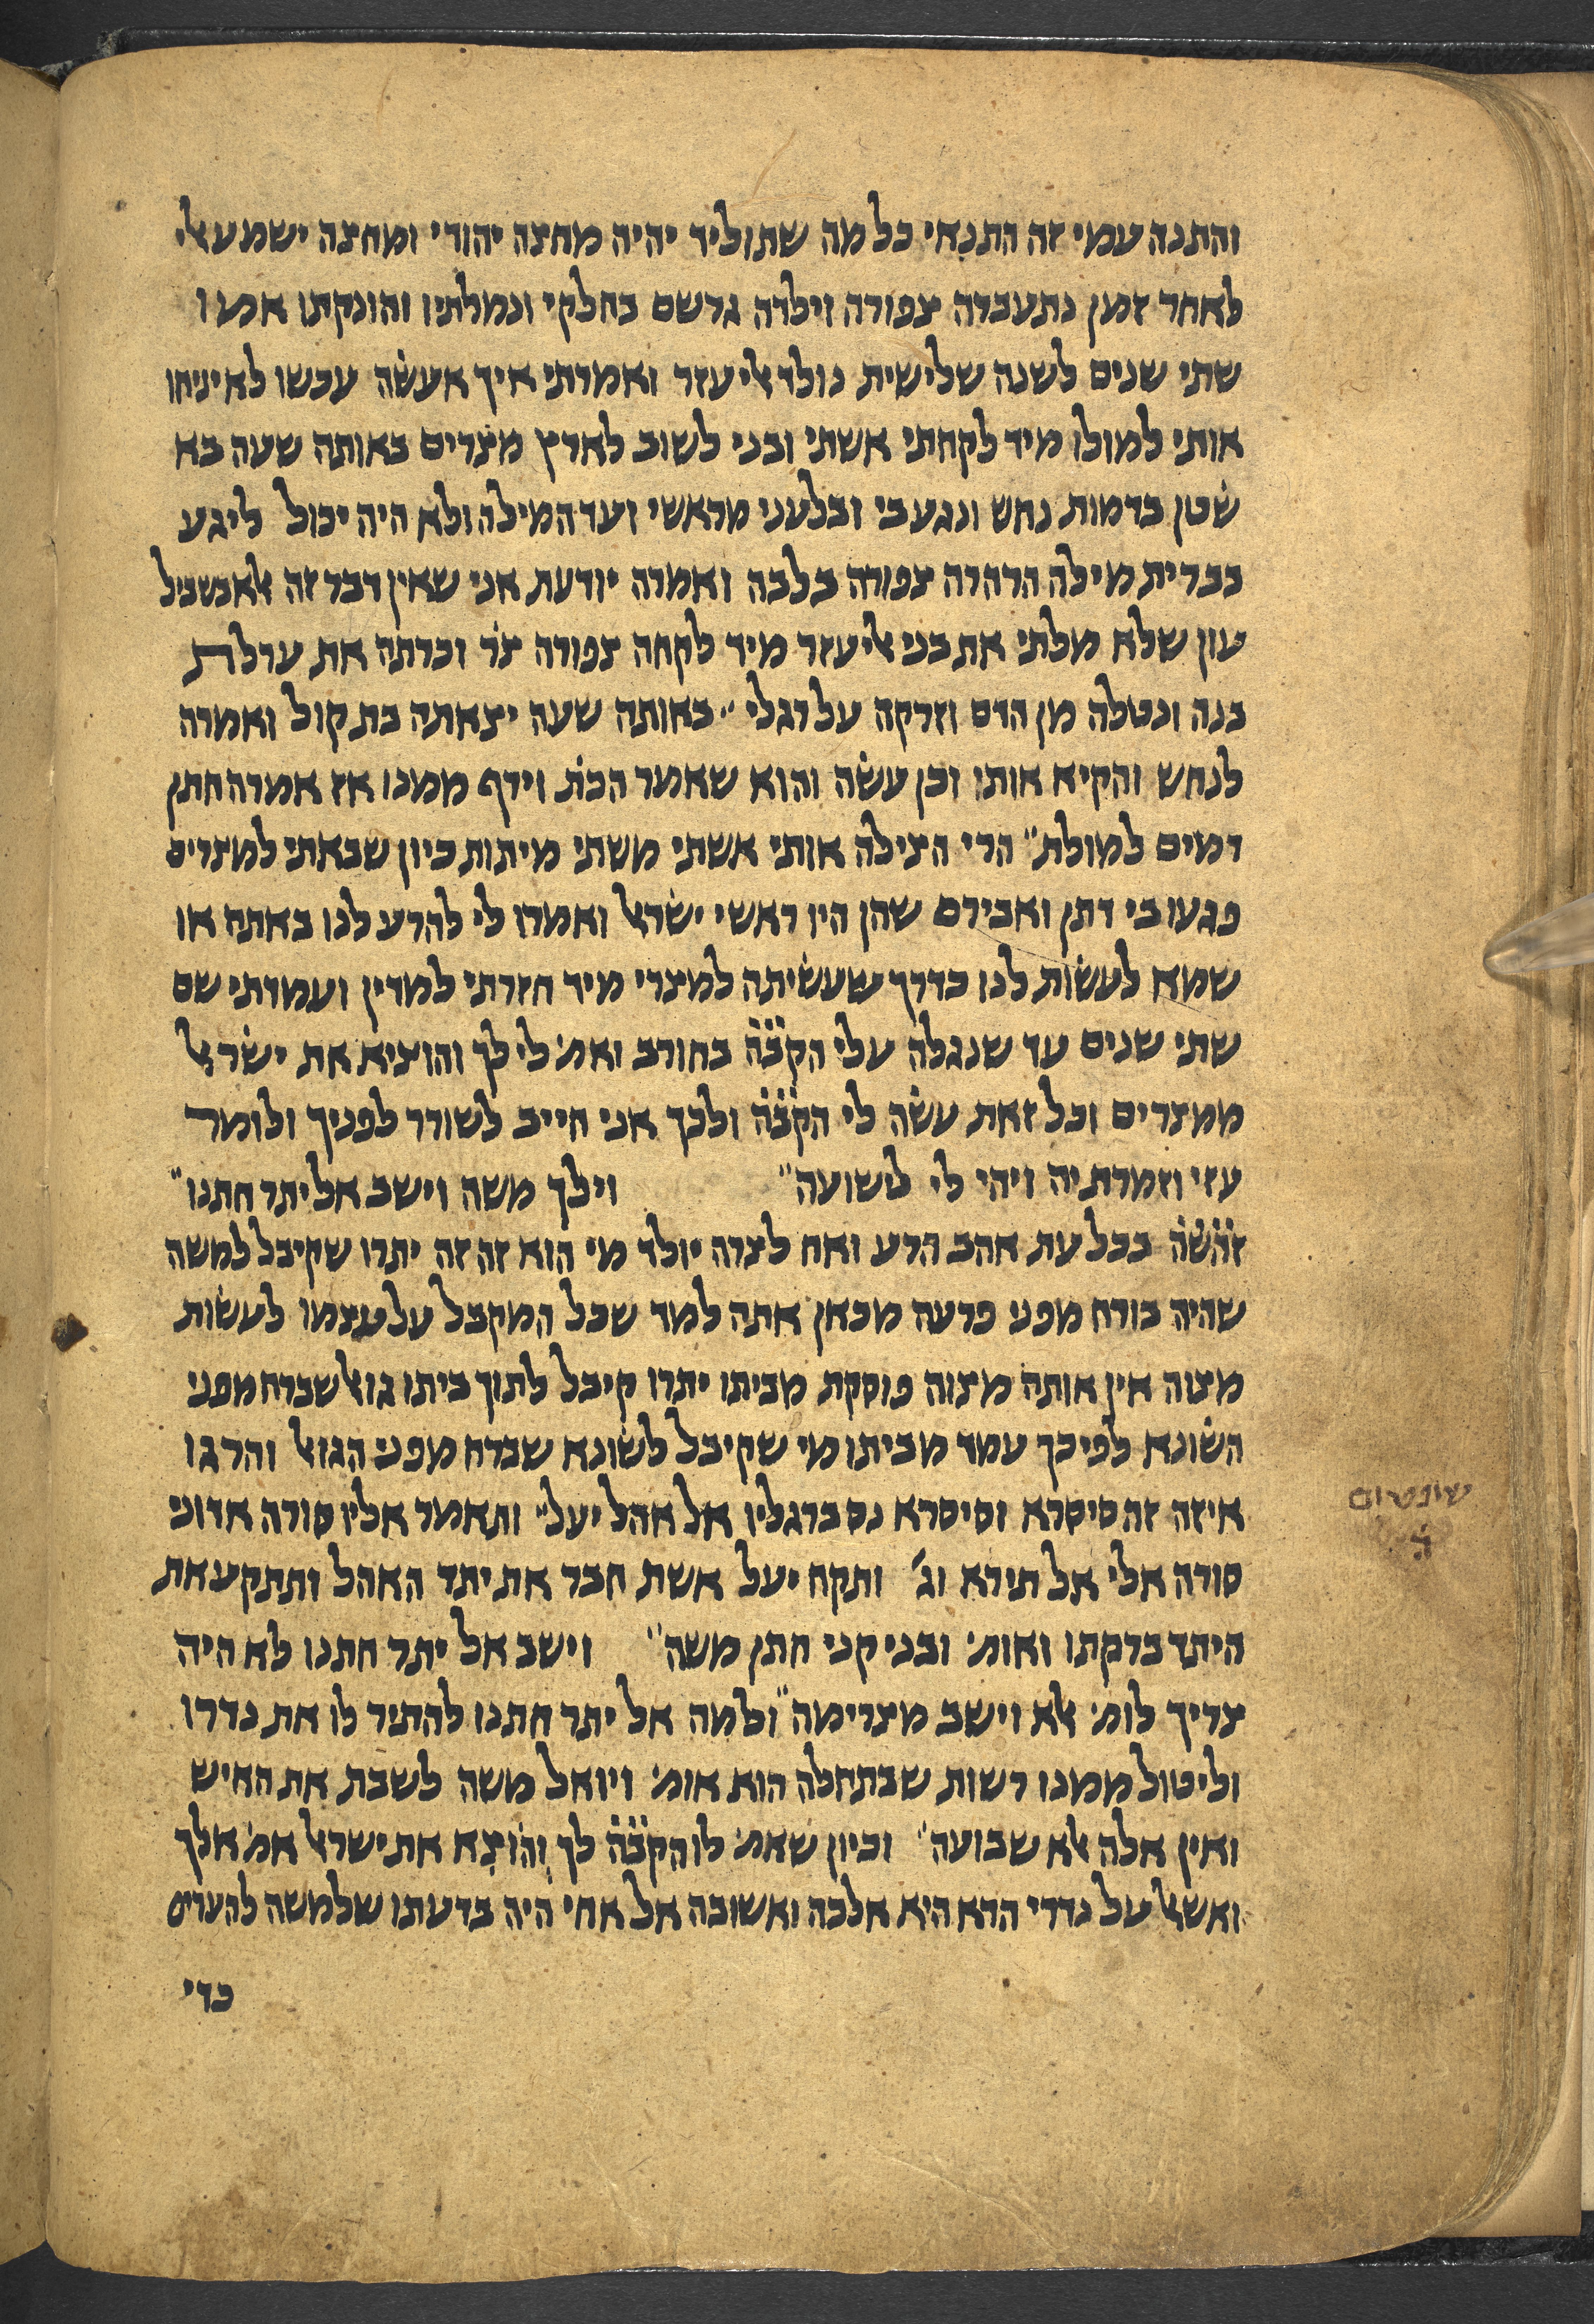 והתנה עמי זה התנאי כל מה שתוליד יהיה מחצה יהודי ומחצה ישמעאלי
לאחר זמן נתעברה צפורה וילדה גרשם בחלקי ונמלתיו והונקתו אמו
שתי שנים לשנה שלישית נולד אליעזר ואמרתי איך אעשה עכשו לא יניחו
אותי למולו מיד לקחתי אשתי ובני לשוב לארץ מצרים באותה שעה בא
שטן בדמות נחש ונגע בי ובלעני מראשי ועד המילה ולא היה יכול ליגע
בברית מילה הרהרה צפורה בלבה ואמרה יודעת אני שאין דבר זה אלא בשביל
עון שלא מלתי את בני אליעזר מיד לקחה צפורה צר וכרתה את ערלת
בנה ונטלה מן הדם וזרקה על רגלי״ באותה שעה יצאתה בת קול ואמרה
לנחש והקיא אותו וכן עשה והוא שאמר הכת׳ וירף ממנו אז אמרה חתן
דמים למולת״ הרי הצילה אותי אשתי משתי מיתות כיון שבאתי למצרים
פגעו בי דתן ואבירם שהן היו ראשי ישראל ואמרו לי להרע לנו באתה או
שמא לעשות לנו כדרך שעשיתה למצרי מיד חזרתי למדין ועמדתי שם
שתי שנים עד שנגלה עלי הקבה בחורב ואמ׳ לי לך והוציא את ישראל
ממצרים וכל זאת עשה לי הקבה ולכך אני חייב לשורר לפניך ולומר
עזי וזמרת יה ויהי לי לישועה״ וילך משה וישב אל יתר חתנו״
זהשה בכל עת אהב הרע ואח לצרה יולד מי הוא זה זה יתרו שקיבל למשה
שהיה בורח מפני פרעה מכאן אתה למד שכל המקבל על עצמו לעשות
מצוה אין אותה מצוה פוסקת מביתו יתרו קיבל לתוך ביתו גואל שברח מפני
השונא לפיכך עמד מביתו מי שקיבל לשונא שברח מפני הגואל והרגו
איזה זה סיסרא וסיסרא נס ברגליו אל אהל יעל״ ותאמר אליו סורה אדוני
סורה אלי אל תירא וג׳ ותקח יעל אשת חבר את יתד האהל ותתקע את
היתד ברקתו ואומ׳ ובני קני חתן משה״ וישב אל יתר חתנו לא היה
צריך לומ׳ אלא וישב מצרימה״ ולמה אל יתר חתנו להתיר לו את נדרו
וליטול ממנו רשות שבתחלה הוא אומ׳ ויואל משה לשבת את האיש
ואין אלה אלא שבועה״ וכיון שאמ׳ לו הקבה לך והוצא את ישראל אמ׳ אלך
ואשאל על נדרי הדא היא אלכה ואשובה אל אחי היה בדעתו שלמשה להערים
כדי
שופטים
ד׳